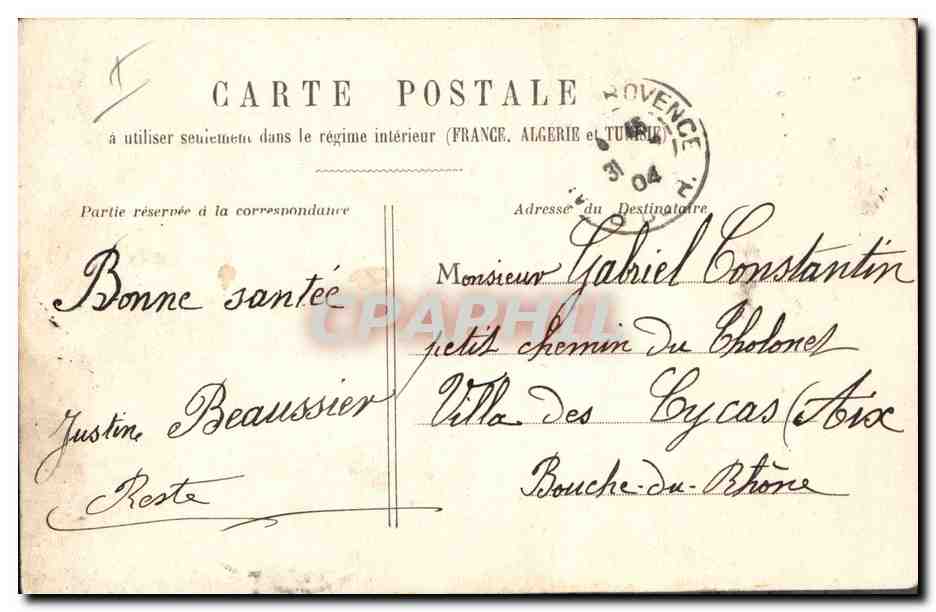 CARTE POSTALE
à utiliser seulement dans le régime intérieur (FRANCE, ALGERIE et TUNISIE)
PROVENCE
31
04
Partie réservée à la correspondance
Adresse du Destinataire
Bonne santée
Justine Beaussier
Reste
Monsieur Gabriel Constantin
petit chemin du Tholonet
Villa des Cycas (Aix
Bouche-du-Rhône
CPAPHIL